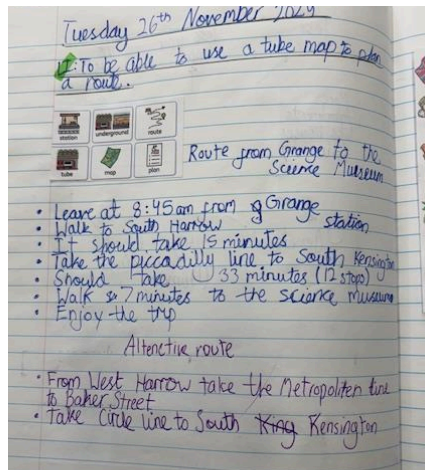 Tuesday 26th November 2024
LI: To be able to use a tube map to plan
a route.
station
underground
route
tube
map
plan
Route from Grange to the
Science Museum
• Leave at 8:45am from Grange
• Walk to South Harrow station
• It should take 15 minutes
• Take the piccadilly line to South Kensington
• Should take 33 minutes (12 stops)
• Walk 7 minutes to the science museum
• Enjoy the trip
Altenctive route
• From West Harrow take the Metropoliten line
to Baker Street
• Take Circle line to South King Kensington